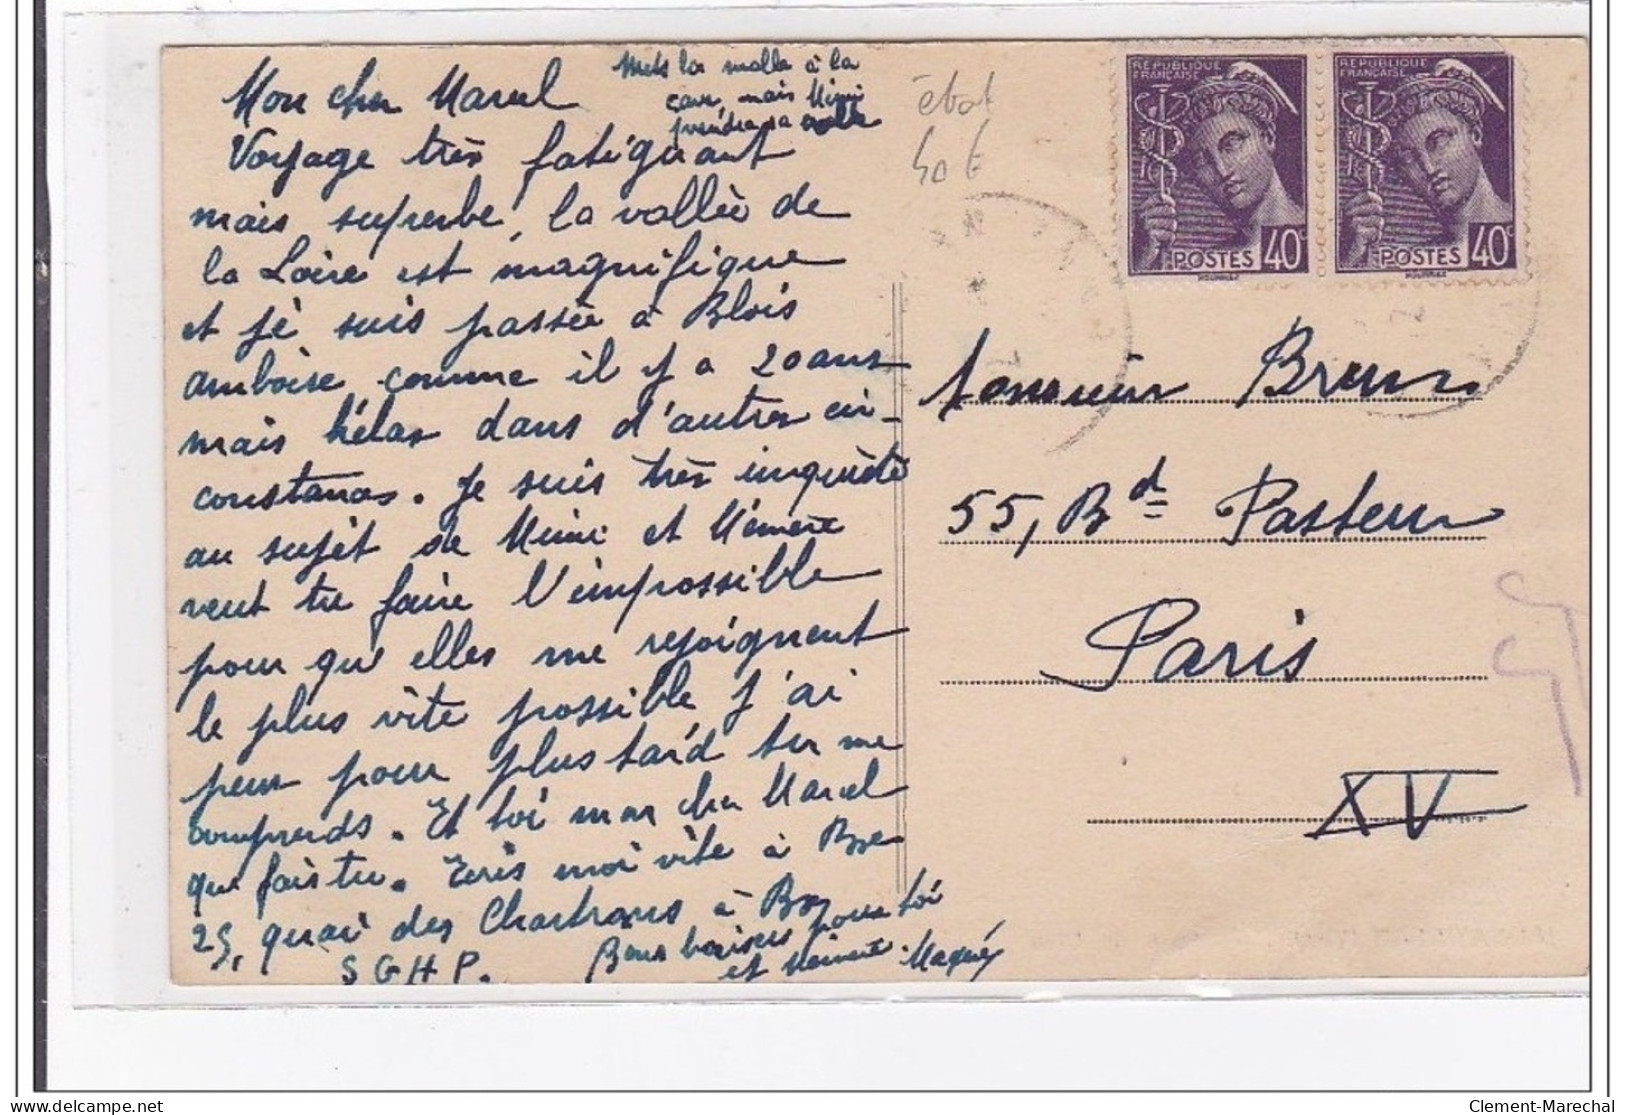 Mon cher Marcel
Mets la malle à la
cave, mais Mimi
prendra sa
Voyage très fatiguant
mais superbe, la vallée de
la Loire est magnifique
et je suis passée à Blois
Amboise comme il y a 20 ans
mais hélas dans d'autres cir-
constances. Je suis très inquiète
au sujet de Mimi et Mémère
veut tu faire l'impossible
pour qu'elles me rejoignent
le plus vite possible j'ai
peur pour plus tard tu me
comprends. Et toi mon cher Marcel
que fais tu. Ecris moi vite à Bx
25, quai des Chartrons à Bx
S G H P.
Bons baisers pour toi
et Mémère
ébat
40 €
REPUBLIQUE
FRANÇAISE
POSTES 40c
REPUBLIQUE
FRANÇAISE
POSTES 40c
Monsieur Brun
55, Bd Pasteur
Paris
XV
Clement-Marechal